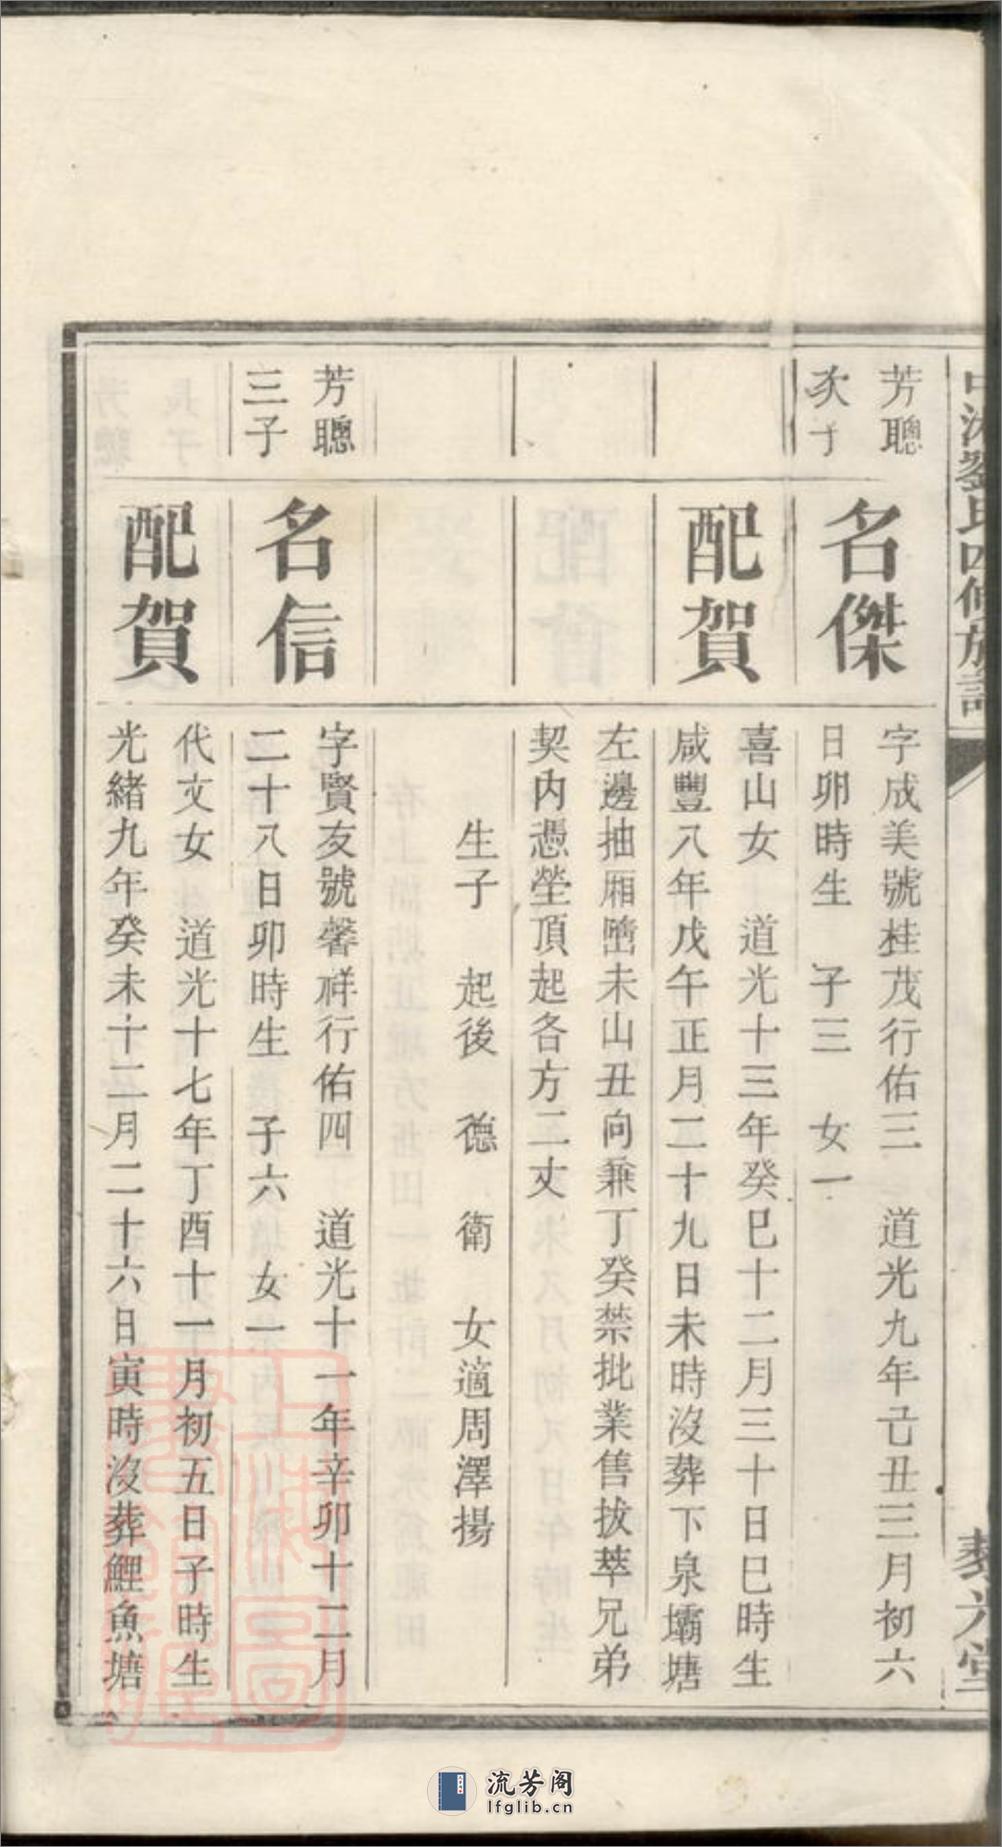 劉氏四修族譜
芳聰
次子
名傑
字成美號桂茂行佑三　道光九年己丑三月初六
日卯時生　子三　女一
配賀
喜山女　道光十三年癸巳十二月三十日巳時生
咸豐八年戊午正月二十九日未時沒葬下泉壩塘
左邊抽廂墮未山丑向兼丁癸禁批業售拔萃兄弟
契內憑塋頂起各方二丈
生子　起後　德　衛　女適周澤揚
芳聰
三子
名信
字賢友號馨祥行佑四　道光十一年辛卯十二月
二十八日卯時生　子六　女一
配賀
代文女　道光十七年丁酉十一月初五日子時生
光緒九年癸未十二月二十六日寅時沒葬鯉魚塘
流芳阁
lfglib.cn